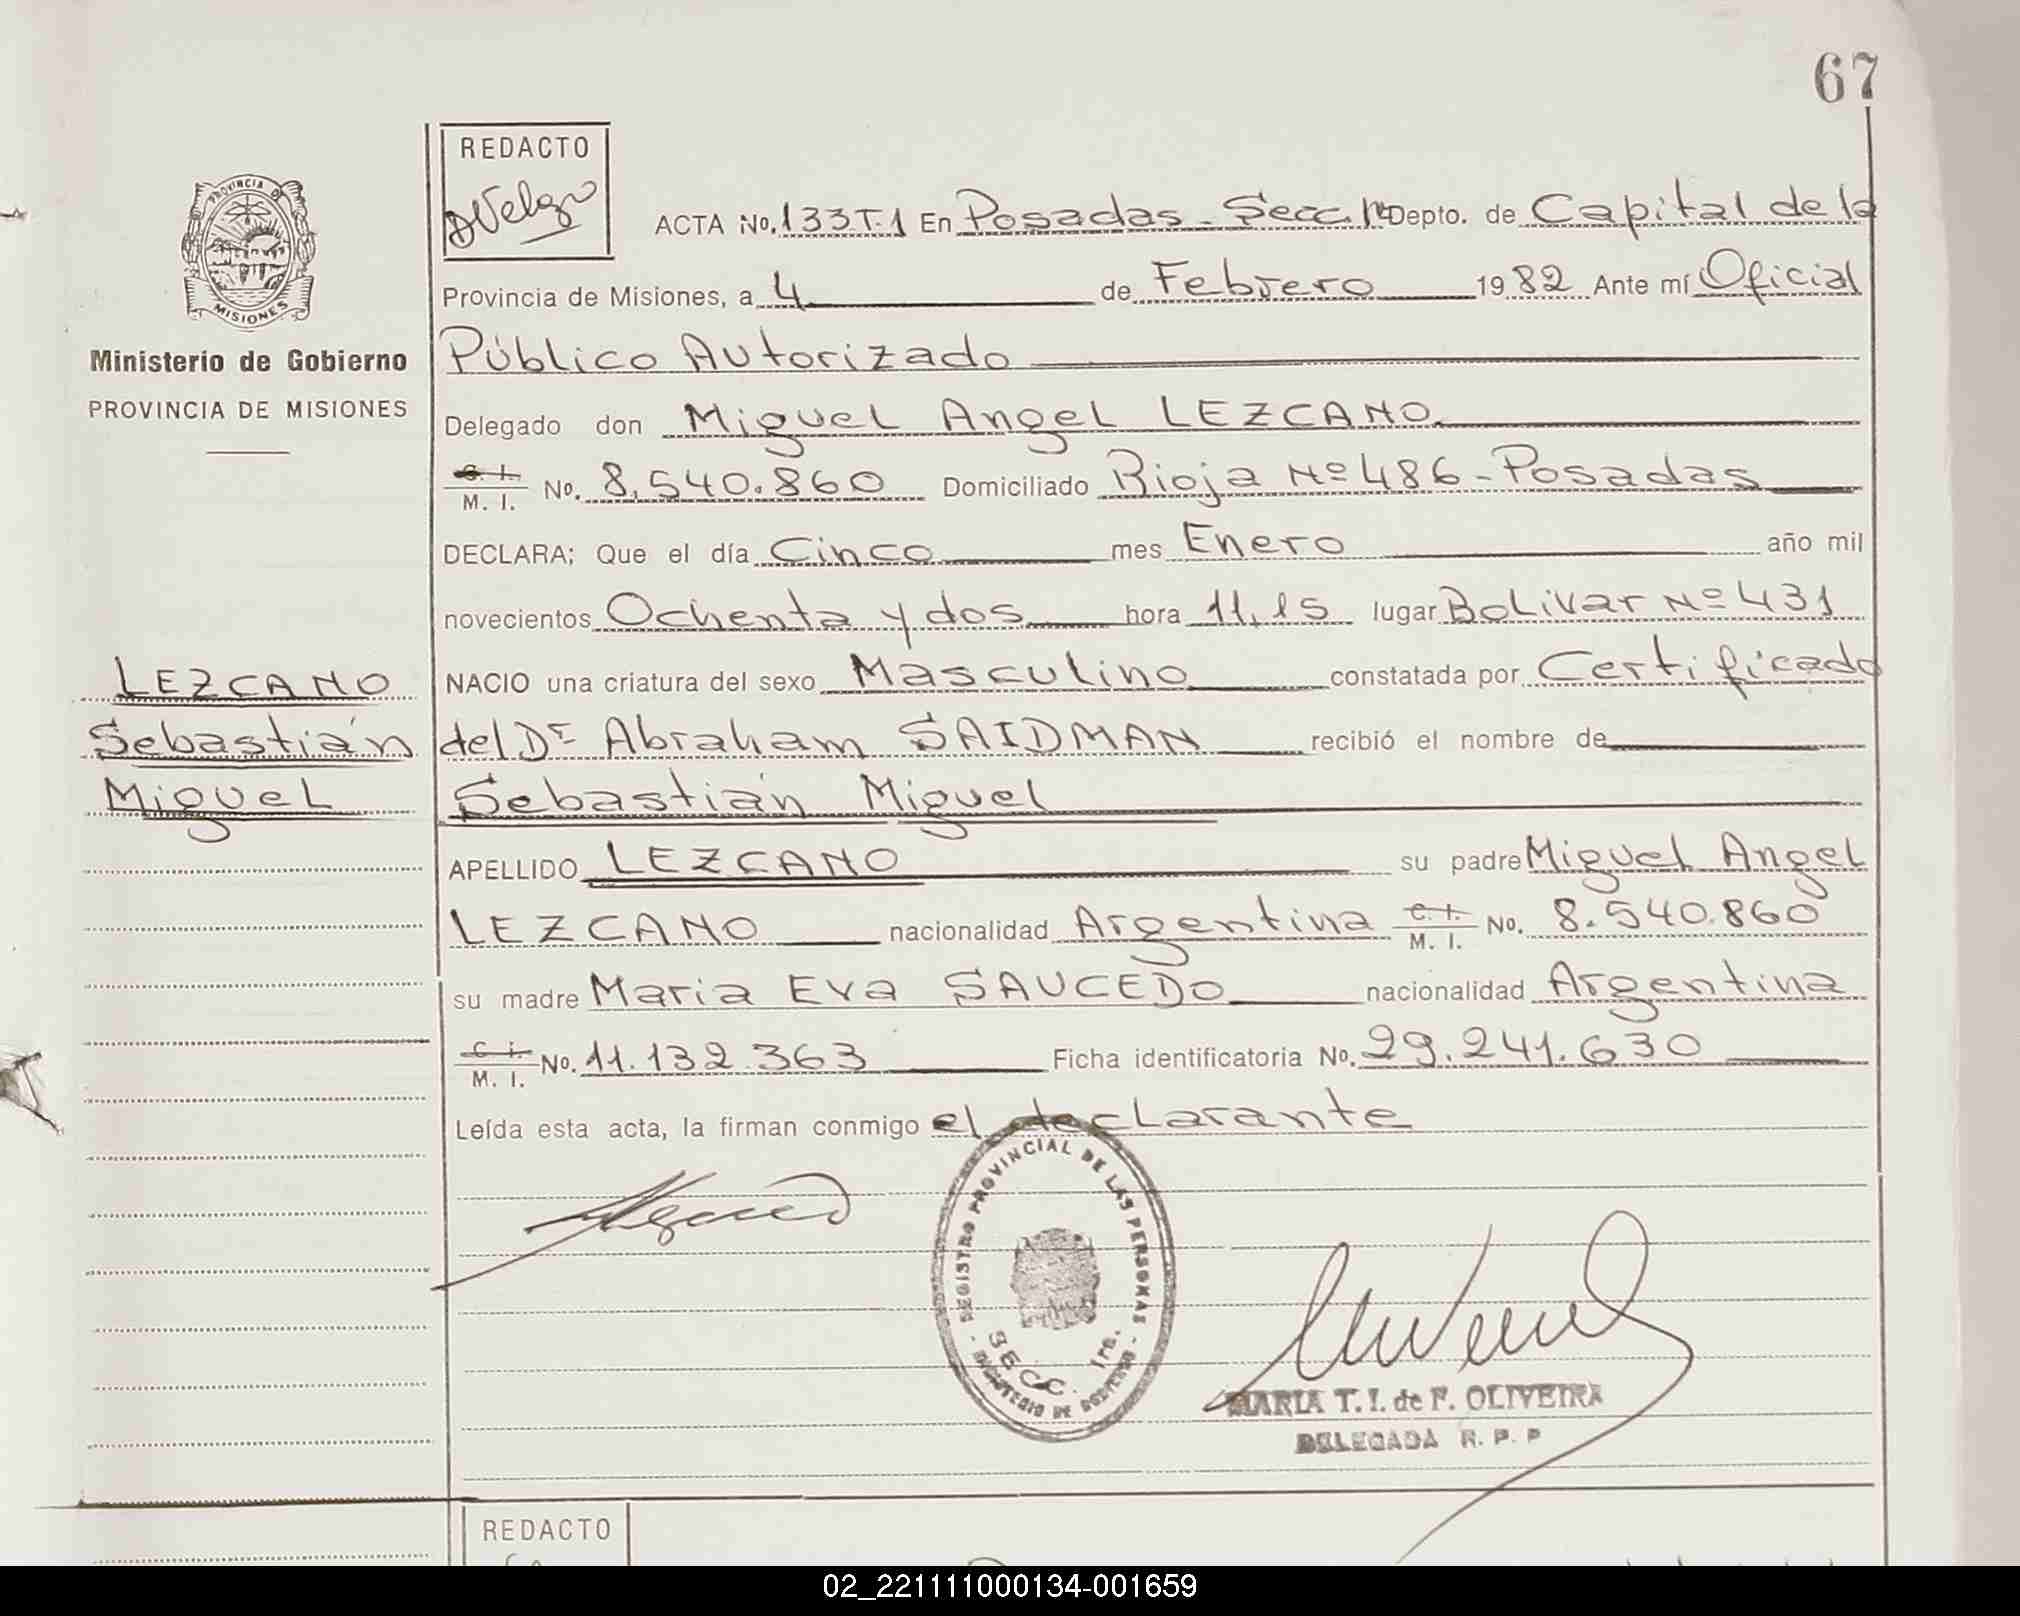 67
REDACTO
PROVINCIA DE
MISIONES
Ministerio de Gobierno
PROVINCIA DE MISIONES
LEZCANO
Sebastián
Miguel
ACTA No. 133T.1 En Posadas - Secc. 1ª Depto. de Capital de la
Provincia de Misiones, a 4 de Febrero 1982 Ante mí Oficial
Público Autorizado
Delegado don Miguel Angel LEZCANO
C. I. M. I. No. 8.540.860 Domiciliado Rioja Nº 486 - Posadas
DECLARA; Que el día Cinco mes Enero año mil
novecientos Ochenta y dos hora 11,15 lugar Bolivar Nº 431
NACIO una criatura del sexo Masculino constatada por Certificado
del Dr Abraham SAIDMAN recibió el nombre de
Sebastián Miguel
APELLIDO LEZCANO su padre Miguel Angel
LEZCANO nacionalidad Argentina C. I. M. I. No. 8.540.860
su madre Maria Eva SAUCEDO nacionalidad Argentina
C. I. M. I. No. 11.132.363 Ficha identificatoria No. 29.241.630
Leída esta acta, la firman conmigo el declarante
REGISTRO PROVINCIAL DE LAS PERSONAS
SECC. 1ra.
MINISTERIO DE GOBIERNO
MARIA T. I. de F. OLIVEIRA
DELEGADA R. P. P
REDACTO
02_221111000134-001659